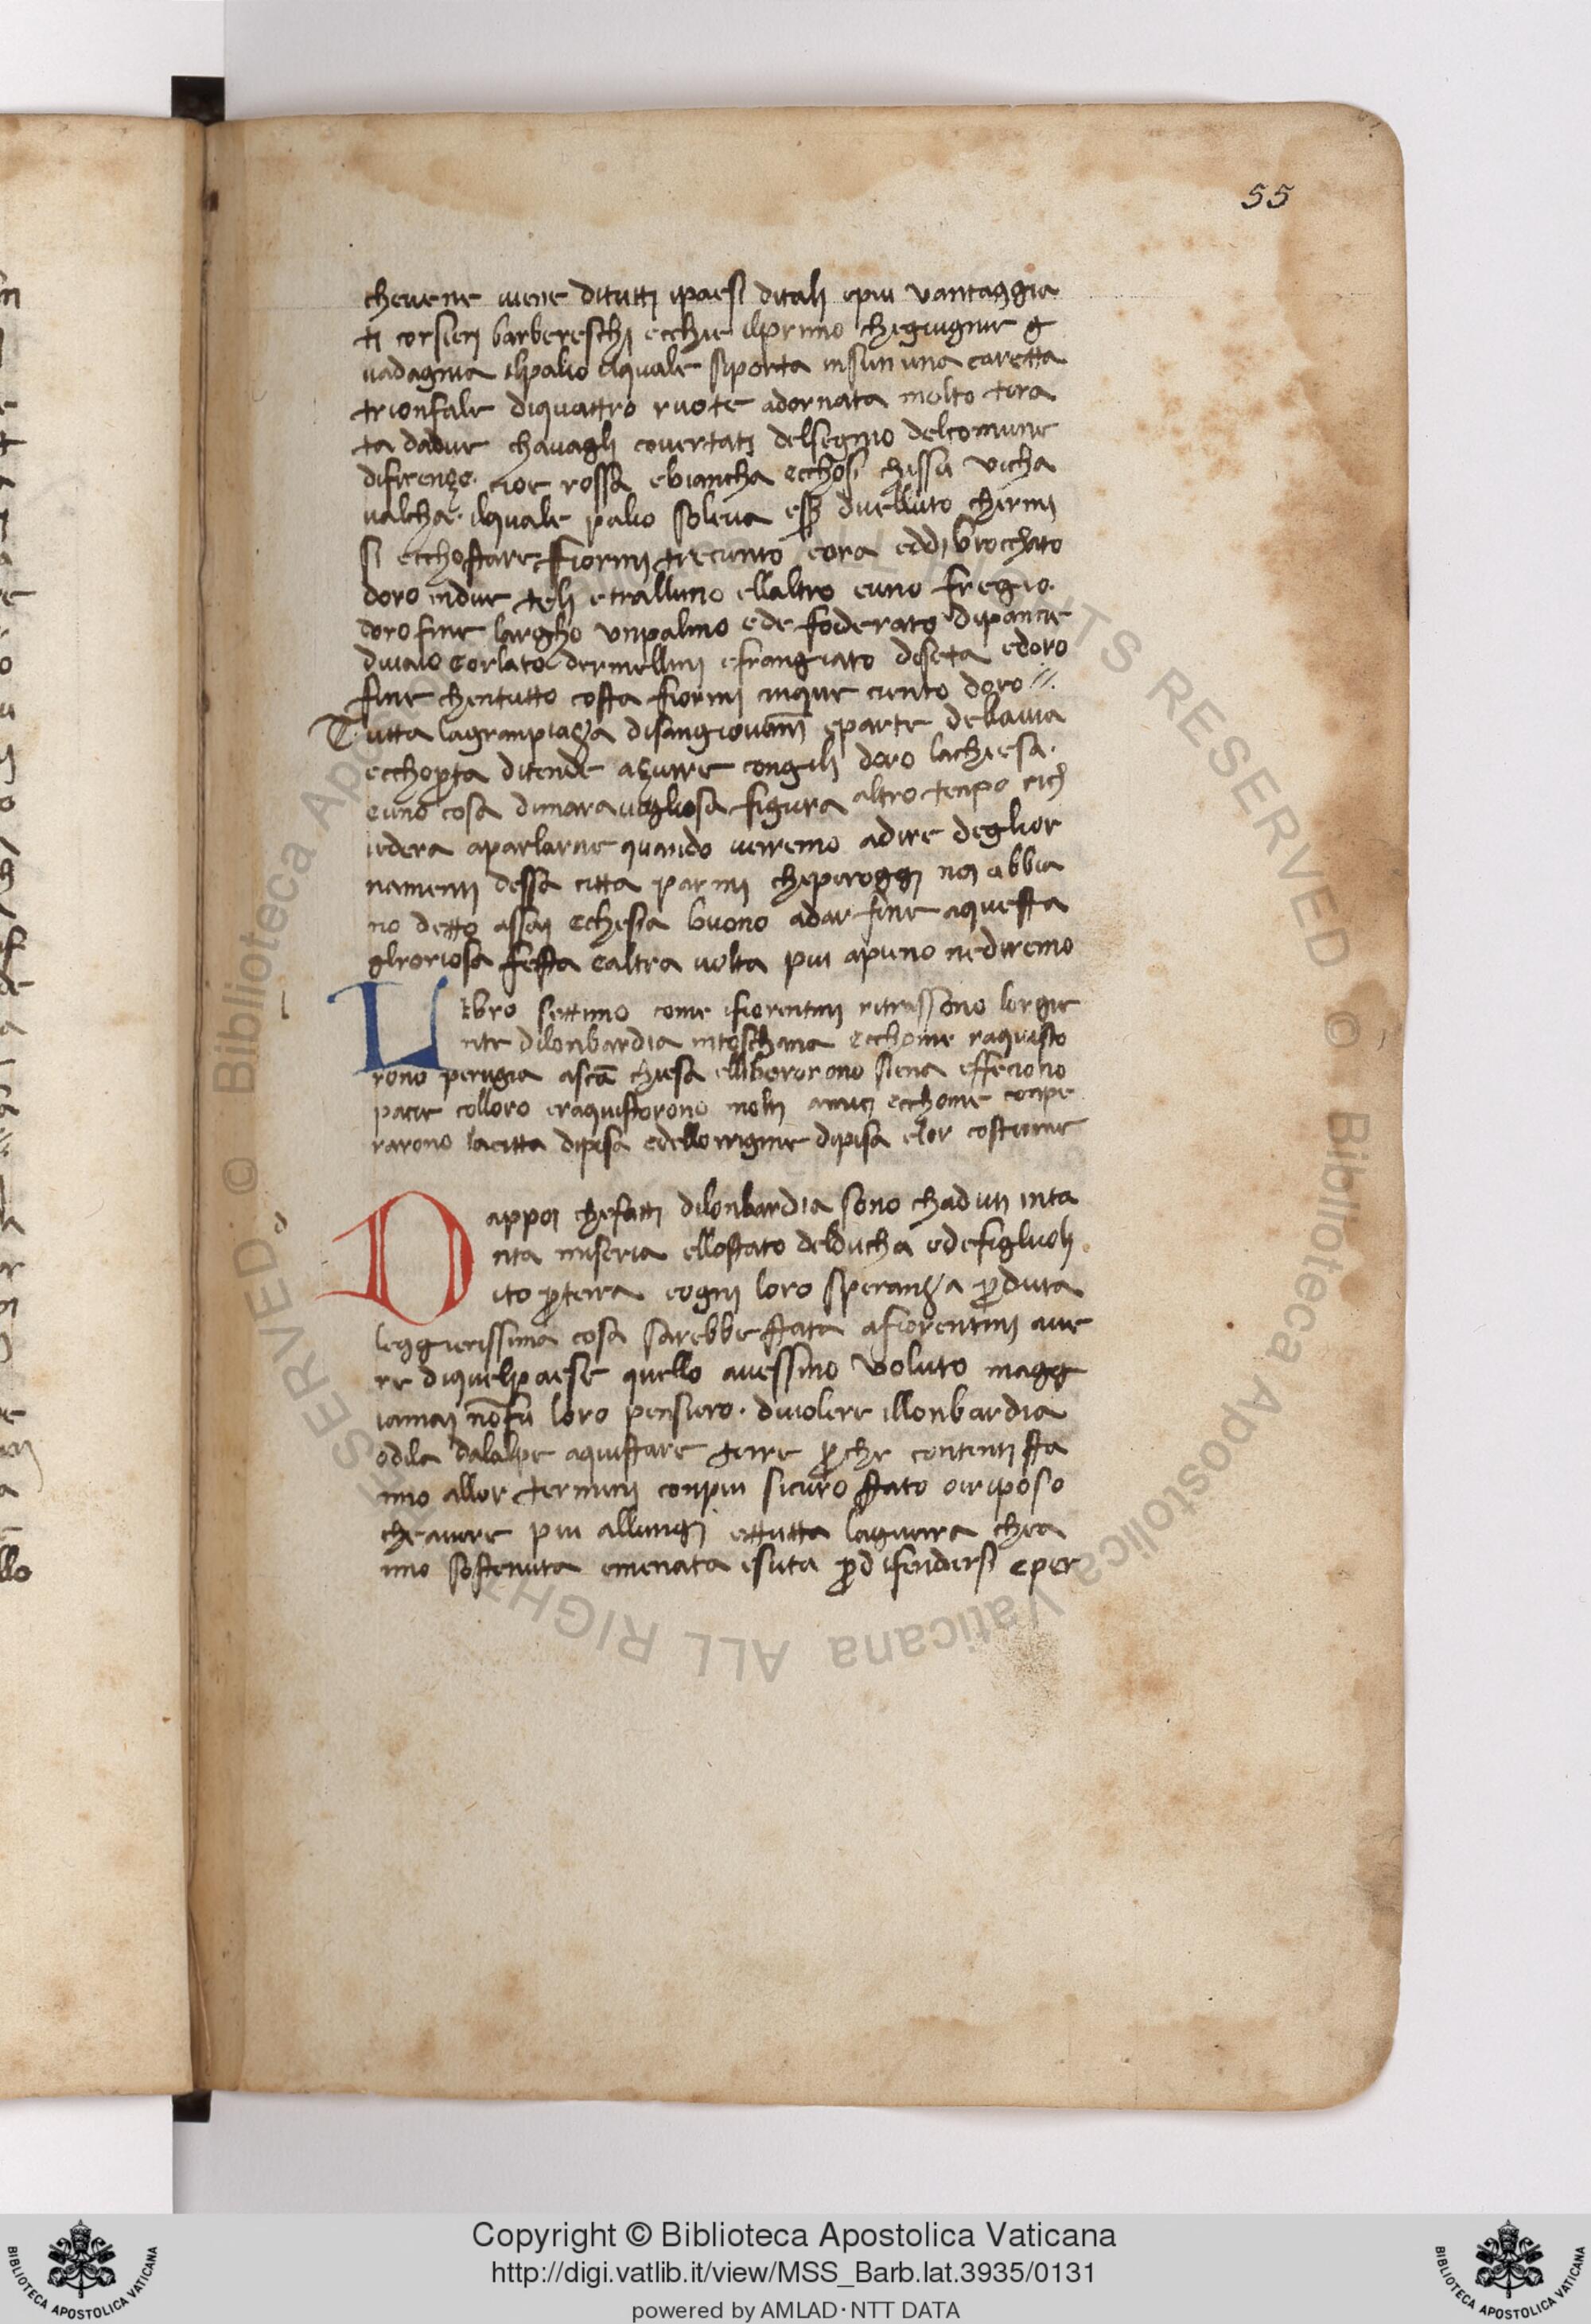 55
cheuene uiene ditutti ipaesi ditali epiu vantaggia
ti corsieri barbereschi ecchie ilprimo chegiugnie g
uadagnia ilpalio ilquale siporta insun una caretta
trionfale diquattro ruote adornata molto tira
ta dadue chauagli couertati delsegnio delcomune
difirenze. cioe rossa ebiancha ecchosi chissu vicha
ualcha. ilquale palio soleua esser diuelluto chermi
si ecchostare fiorini treciento eora eddi brocchato
doro indue teli etralluno ellaltro euno fregio.
doro fine largho vnpalmo ede foderato dipancie
diuaio eorlato dermellini efrangiato diseta edoro
fine chentutto costa fiorini cinque ciento doro //.
Tutta lagranpiaza disangiouanni eparte della uia
ecchoperta ditende azurre congili doro lachiesa.
euno cosa dimarauigliosa figura altro tenpo cich
iedera aparlarne quando uerremo adire deglior
namenti dessa citta parmi cheperoggi noi abbia
no detto assai echesia buono adar fine aquesta
gloriosa festa ealtra uolta piu apieno nediremo
Libro settimo come ifiorentini ritrassono lorgie
nte dilonbardia intoschana ecchome raquisto
rono perugia asca chiesa elliberorono siena effeciono
pacie colloro eraquistorono molti amici ecchome conpe
rarono lacitta dipisa edellorigine dipisa elor costume
Dappoi chefatti dilonbardia sono chaduti inta
nta miseria ellostato delducha edefigluoli
ito perterra eogni loro speranza perduta
leggierissima cosa sarebbe stata afiorentini aue
re diquelpaese quello auessino voluto magg
iamai nonfu loro pensiero. diuolere illonbardia
odila dalalpe aquistare terre perche contenti sta
uno allor termini conpiu sicuro stato eriposo
che auere piu allungi ettutta laguerra chea
nno sostenuta emenata esuta perdifendersi eper
Copyright © Biblioteca Apostolica Vaticana
http://digi.vatlib.it/view/MSS_Barb.lat.3935/0131
powered by AMLAD·NTT DATA